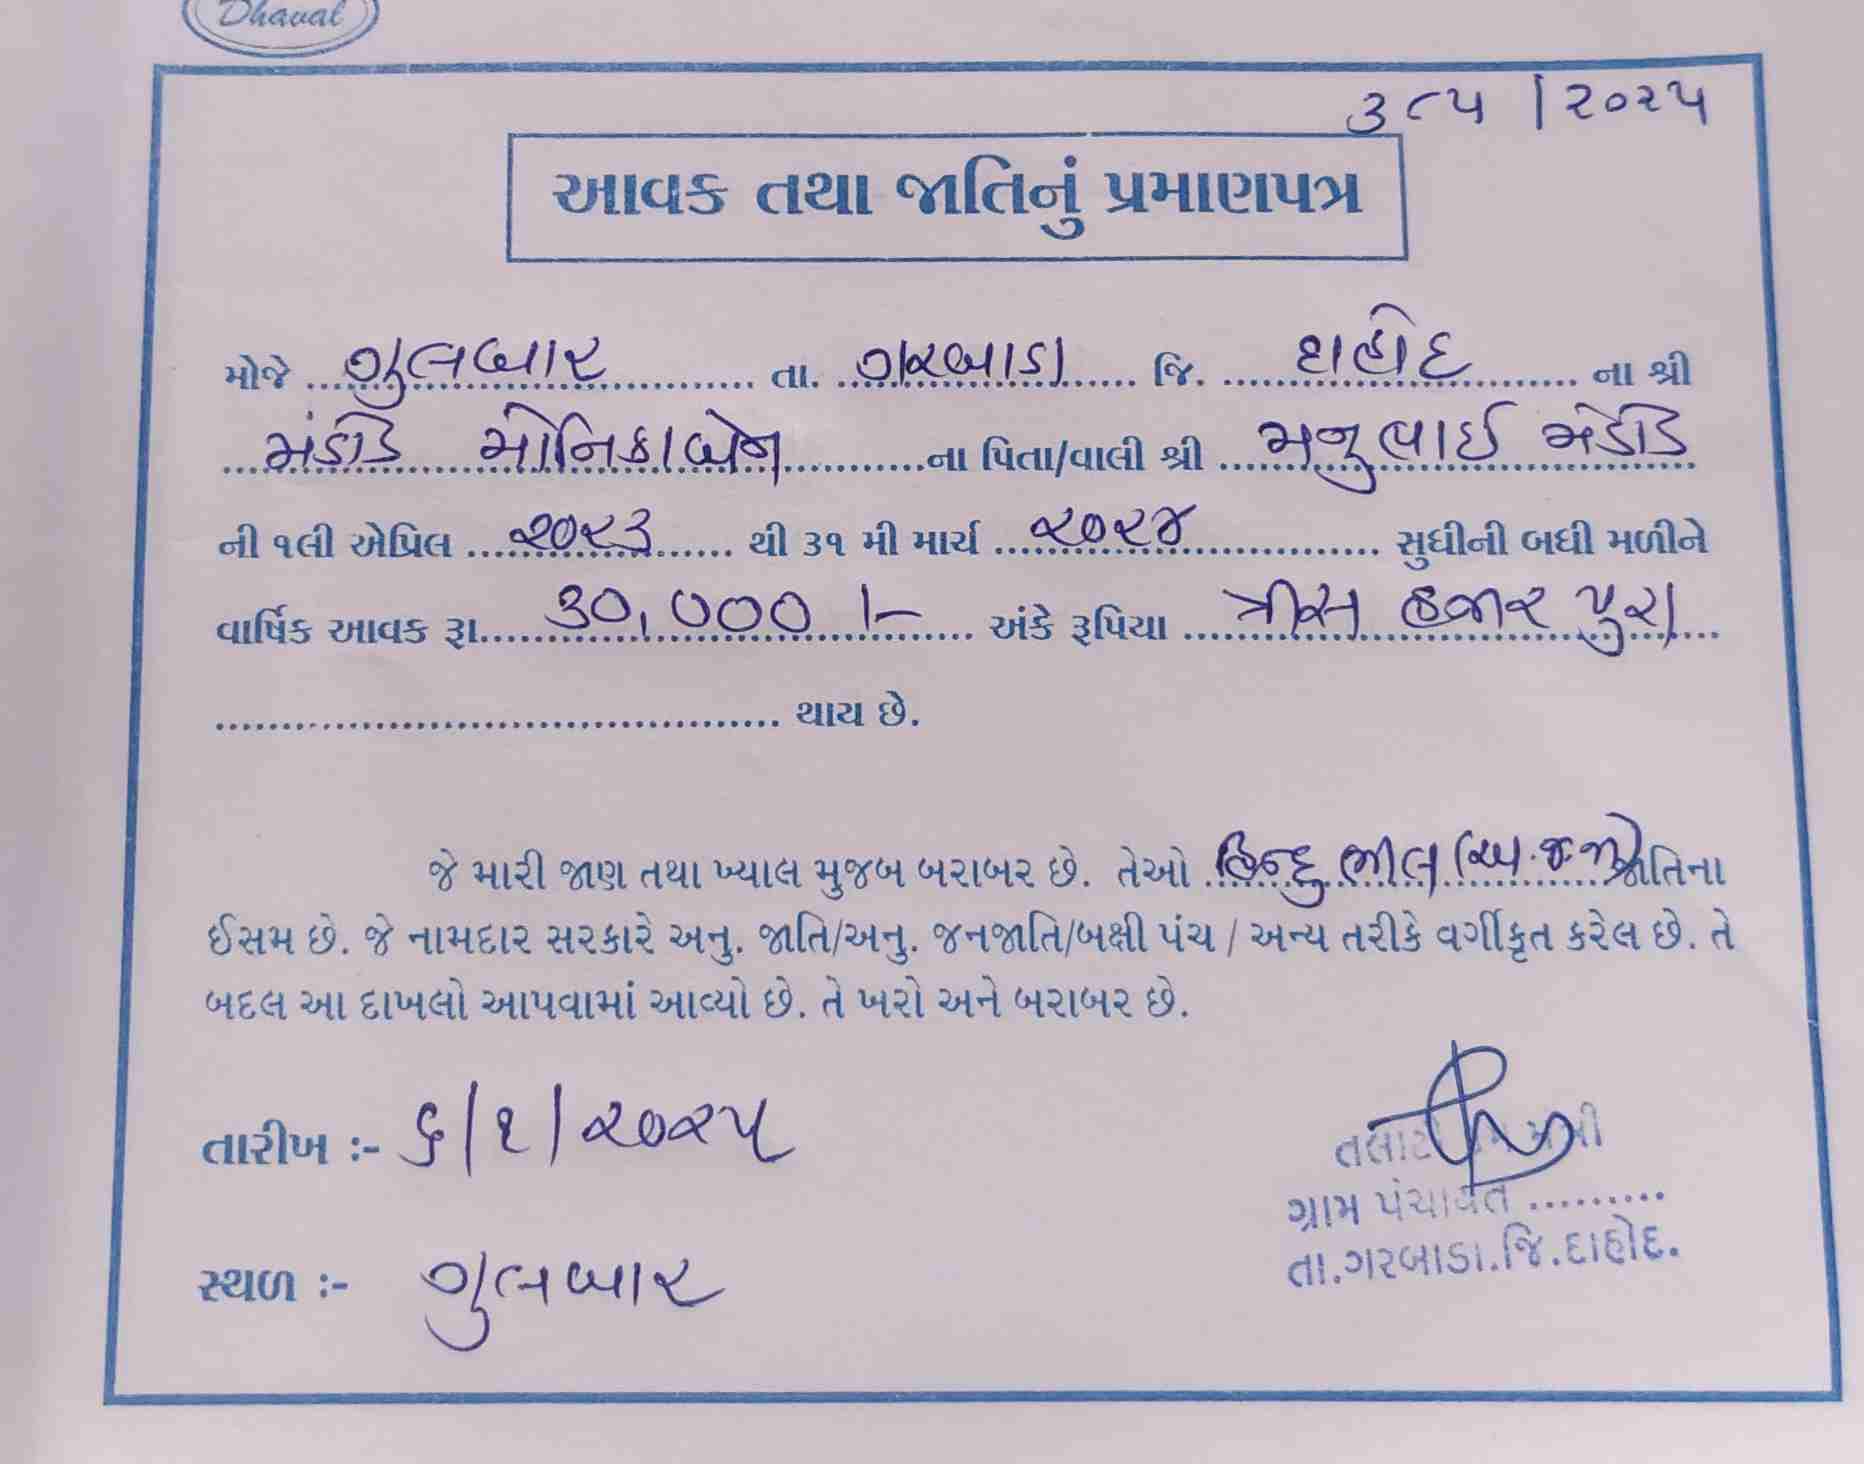 Dhaval
૩૮૫ | ૨૦૨૫
આવક તથા જાતિનું પ્રમાણપત્ર
મોજે ગુલબાર તા. ગરબાડા જિ. દાહોદ ના શ્રી
મંડોડ મોનિકાબેન ના પિતા/વાલી શ્રી મનુભાઈ મંડોડ
ની ૧લી એપ્રિલ ૨૦૨૩ થી ૩૧ મી માર્ચ ૨૦૨૪ સુધીની બધી મળીને
વાર્ષિક આવક રૂા. ૩૦,૦૦૦ /- અંકે રૂપિયા ત્રીસ હજાર પુરા
થાય છે.
જે મારી જાણ તથા ખ્યાલ મુજબ બરાબર છે. તેઓ હિન્દુ ભીલ (અ.જ.જા) જાતિના
ઈસમ છે. જે નામદાર સરકારે અનુ. જાતિ/અનુ. જનજાતિ/બક્ષી પંચ / અન્ય તરીકે વર્ગીકૃત કરેલ છે. તે
બદલ આ દાખલો આપવામાં આવ્યો છે. તે ખરો અને બરાબર છે.
તારીખ :- ૬/૧/૨૦૨૫
ગ્રામ પંચાયત .........
તા.ગરબાડા.જિ.દાહોદ.
સ્થળ :- ગુલબાર